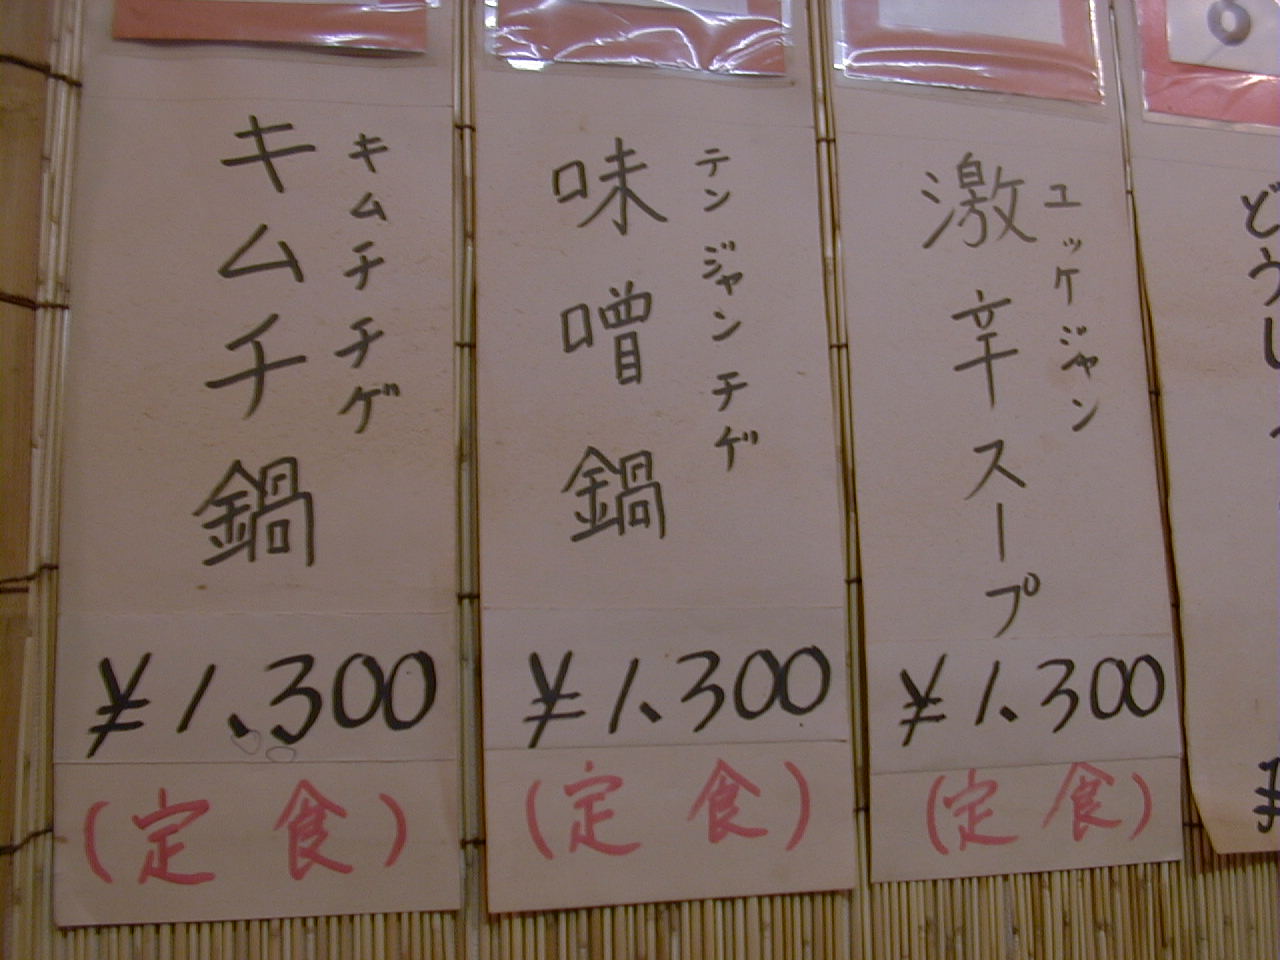 キムチチゲ
キムチ鍋
¥1,300
(定食)
テンジャンチゲ
味噌鍋
¥1,300
(定食)
ユッケジャン
激辛スープ
¥1,300
(定食)
どうし
8